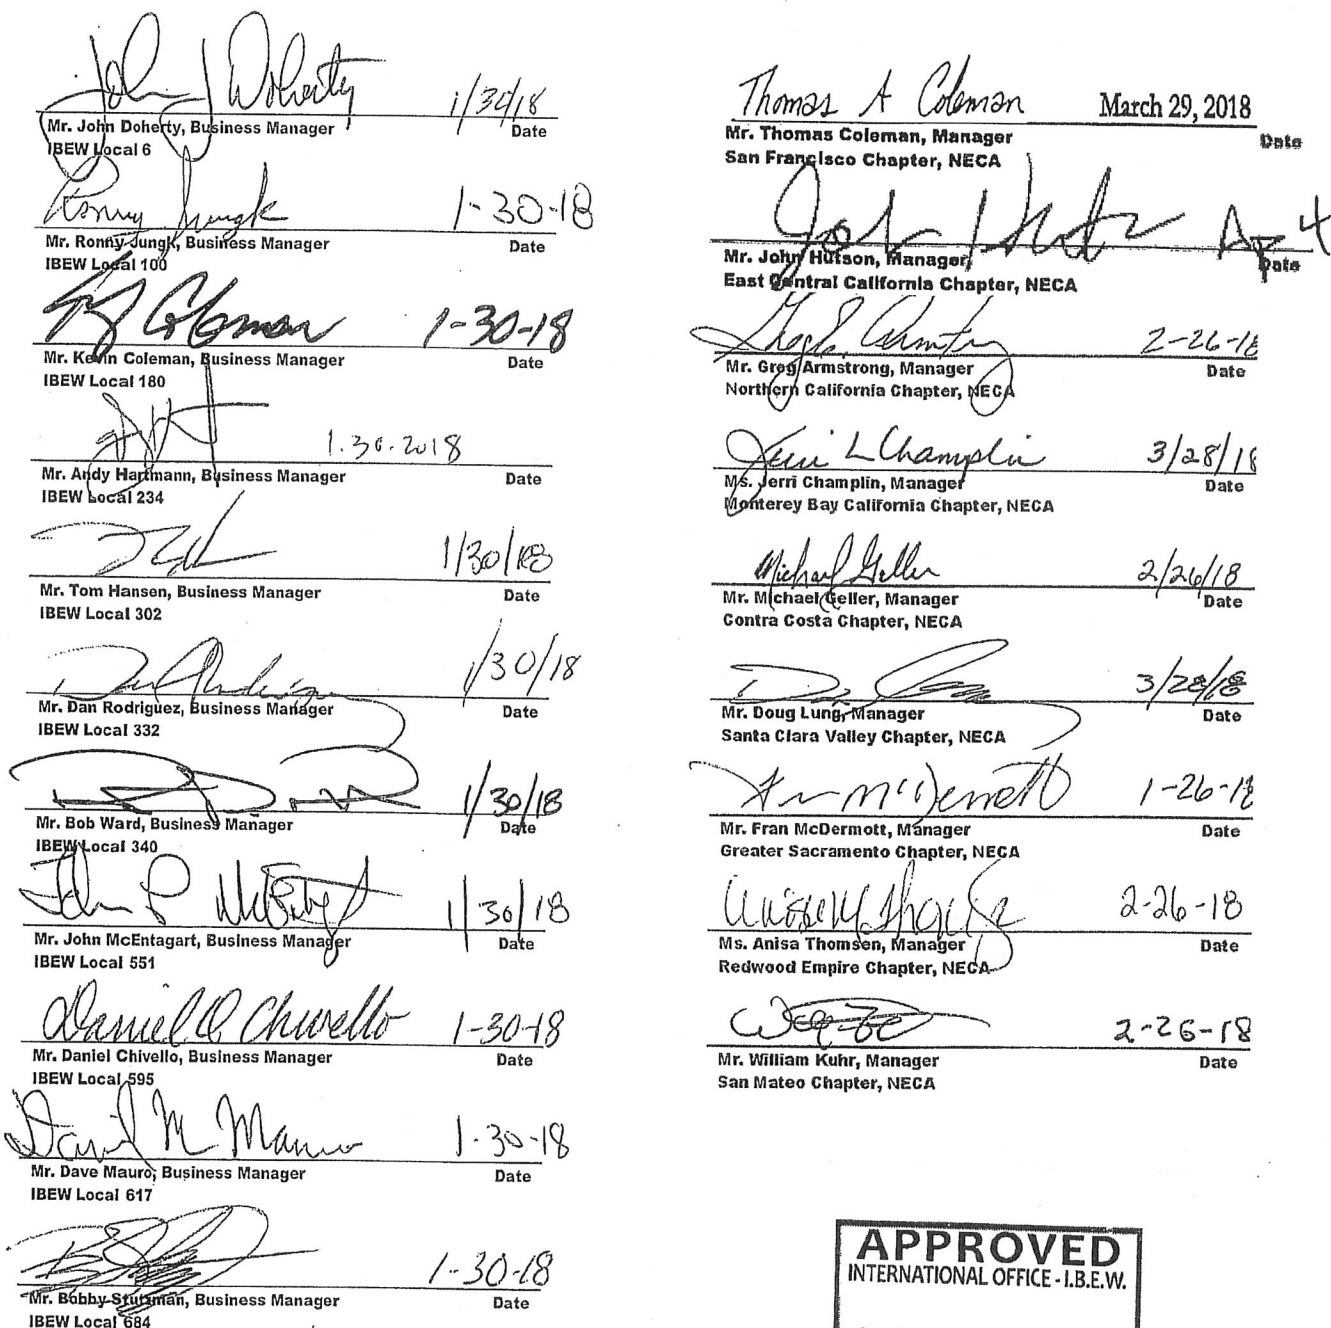 John J Doherty 1/30/18
Mr. John Doherty, Business Manager Date
IBEW Local 6
Ronny Jungk 1-30-18
Mr. Ronny Jungk, Business Manager Date
IBEW Local 100
Coleman 1-30-18
Mr. Kevin Coleman, Business Manager Date
IBEW Local 180
1.30.2018
Mr. Andy Hartmann, Business Manager Date
IBEW Local 234
1/30/18
Mr. Tom Hansen, Business Manager Date
IBEW Local 302
1/30/18
Mr. Dan Rodriguez, Business Manager Date
IBEW Local 332
1/30/18
Mr. Bob Ward, Business Manager Date
IBEW Local 340
John P McEntagart 1/30/18
Mr. John McEntagart, Business Manager Date
IBEW Local 551
Daniel D Chivello 1-30-18
Mr. Daniel Chivello, Business Manager Date
IBEW Local 595
David M Mauro 1-30-18
Mr. Dave Mauro, Business Manager Date
IBEW Local 617
1-30-18
Mr. Bobby Stutzman, Business Manager Date
IBEW Local 684
Thomas A Coleman March 29, 2018
Mr. Thomas Coleman, Manager Date
San Francisco Chapter, NECA
John Hutson Ap 4
Mr. John Hutson, Manager Date
East Central California Chapter, NECA
2-26-18
Mr. Greg Armstrong, Manager Date
Northern California Chapter, NECA
Jerri L Champlin 3/28/18
Ms. Jerri Champlin, Manager Date
Monterey Bay California Chapter, NECA
Michael Geller 2/26/18
Mr. Michael Geller, Manager Date
Contra Costa Chapter, NECA
3/28/18
Mr. Doug Lung, Manager Date
Santa Clara Valley Chapter, NECA
Fran McDermott 1-26-18
Mr. Fran McDermott, Manager Date
Greater Sacramento Chapter, NECA
2-26-18
Ms. Anisa Thomsen, Manager Date
Redwood Empire Chapter, NECA
2-26-18
Mr. William Kuhr, Manager Date
San Mateo Chapter, NECA
APPROVED
INTERNATIONAL OFFICE - I.B.E.W.